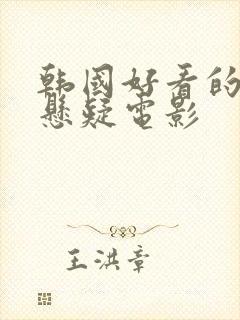 韩国好看的
悬疑电影
王洪章